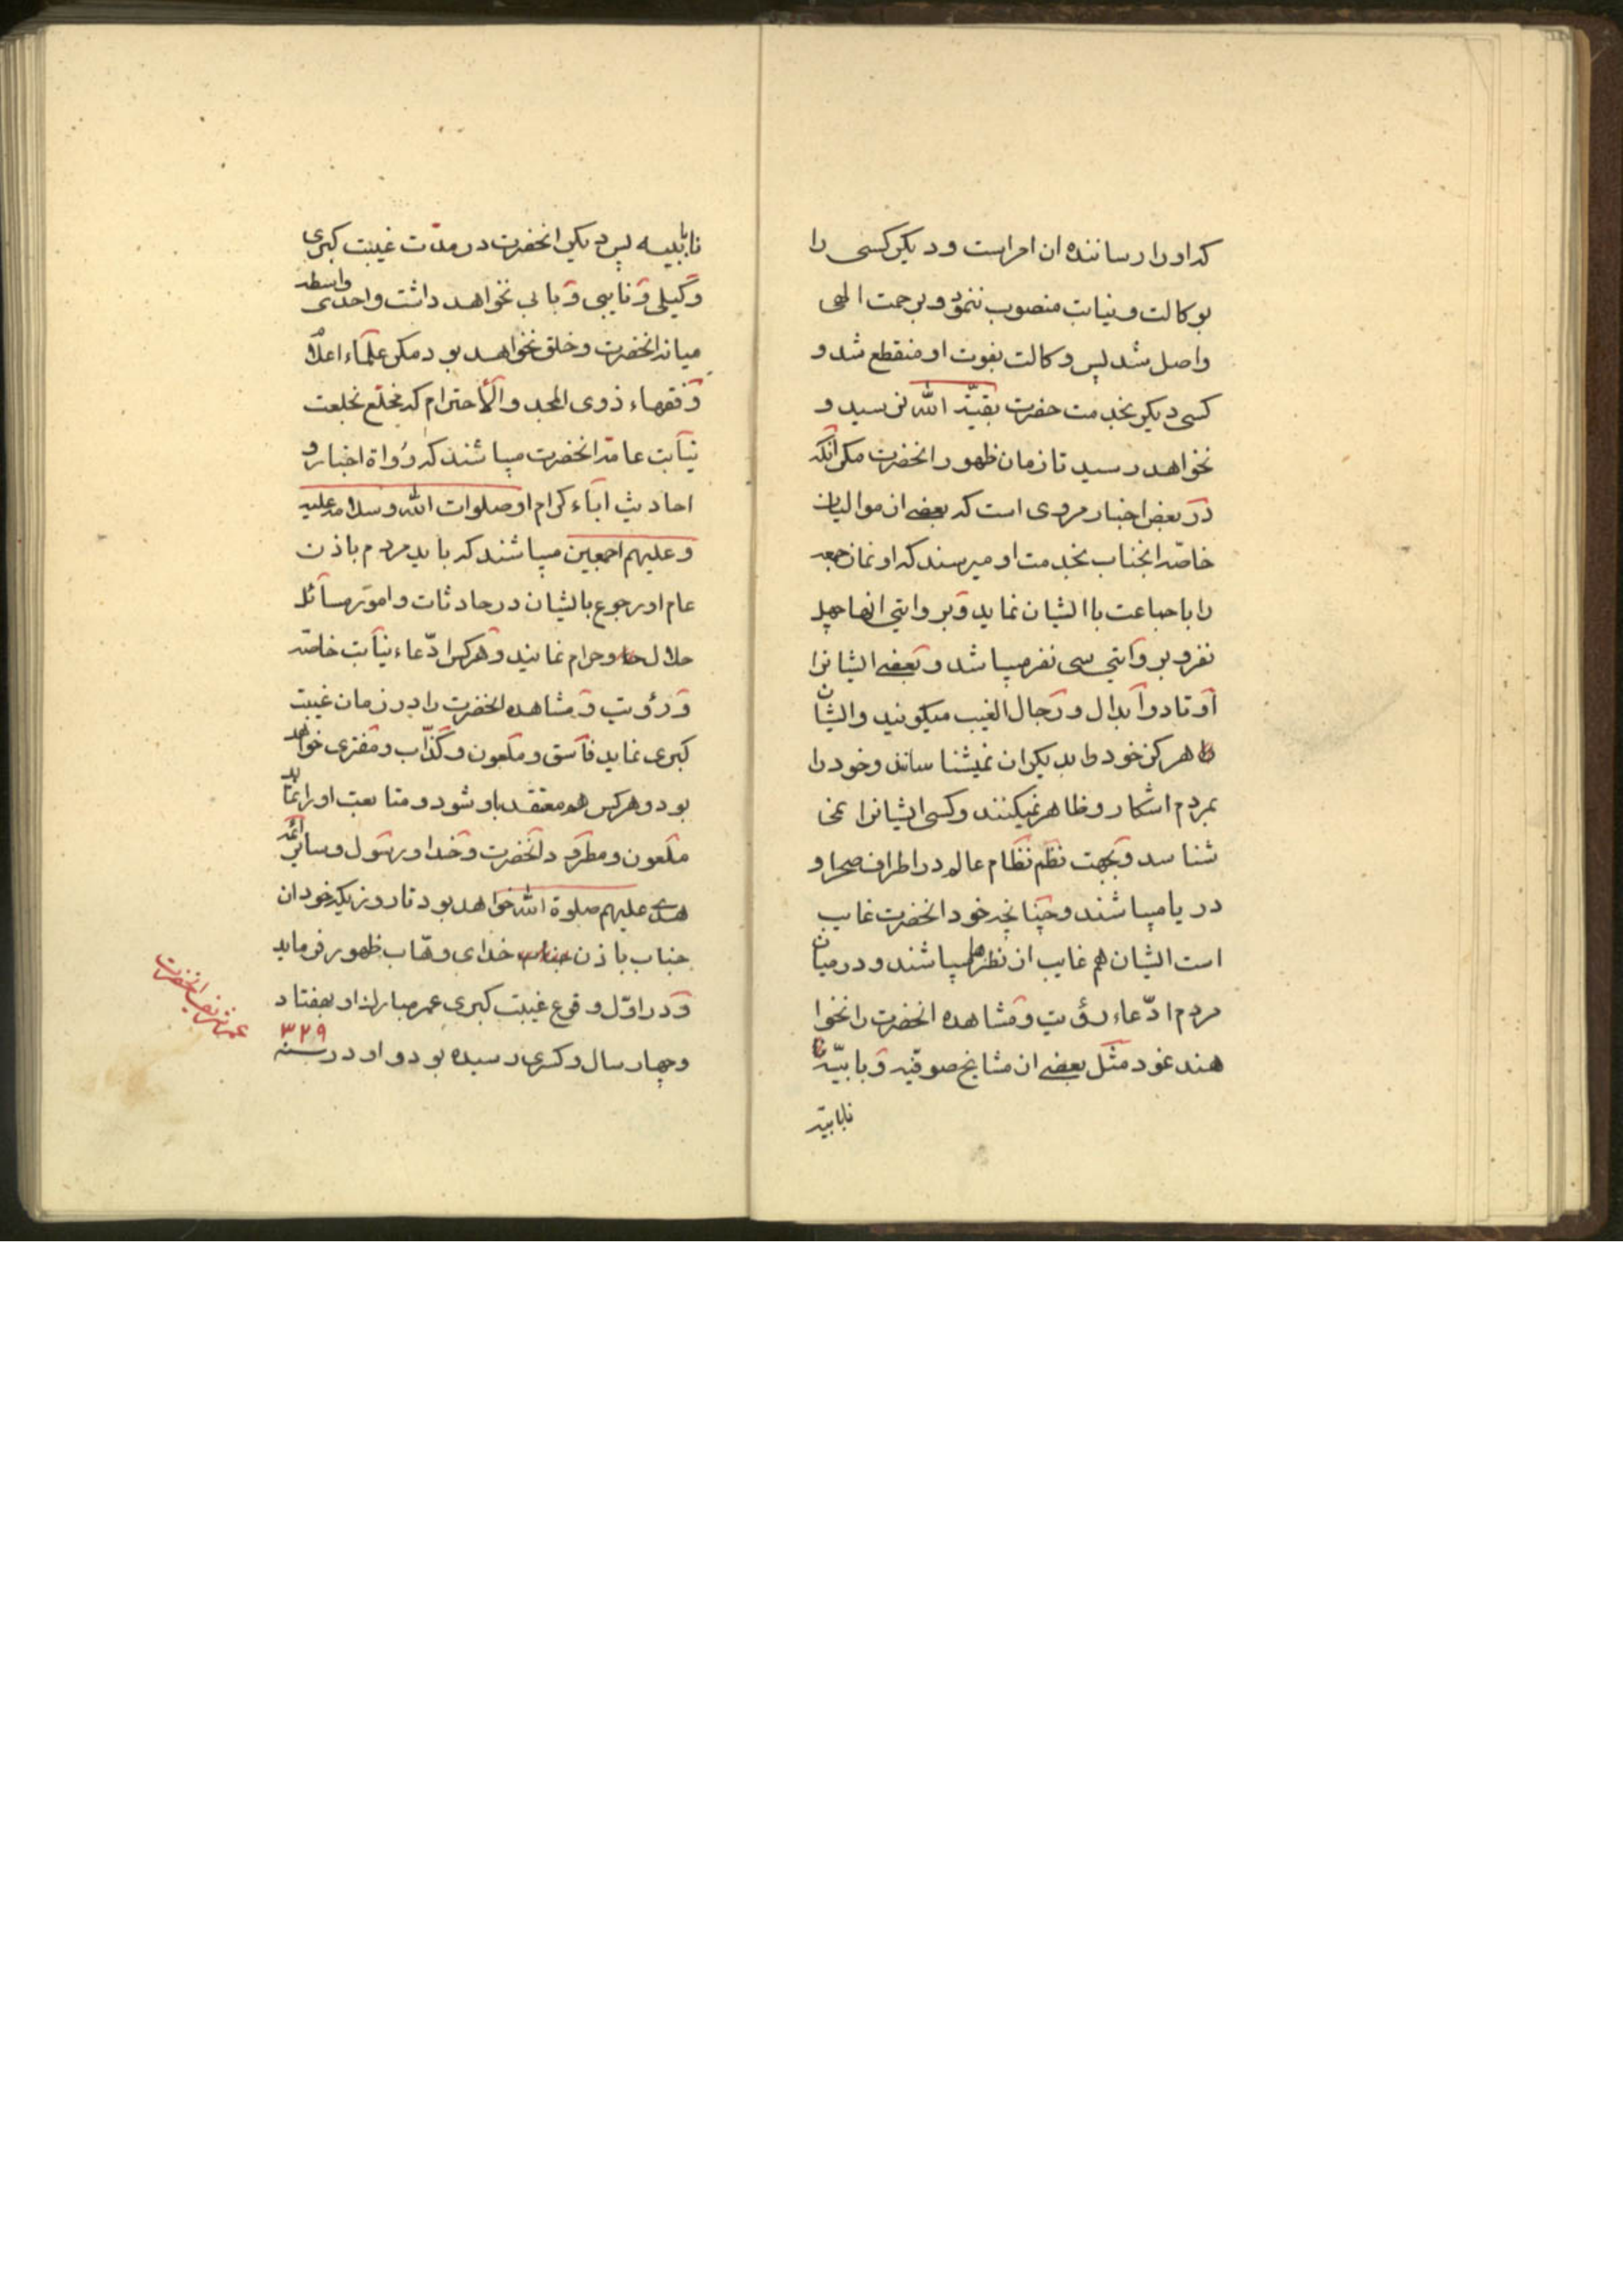 که او را رساننده ان امر است و دیکر کسی را
بوکالت و نیابت منصوب ننمود و برحمت الهی
واصل شد پس وکالت بفوت او منقطع شد و
کسی دیکر بخدمت حضرت بقیّة الله نرسید و
نخواهد رسید تا زمان ظهور انحضرت مکر انکه
در بعض اخبار مروی است که بعضے از موالیان
خاصّه انجناب بخدمت او میرسند که او نماز جمعه
را با جماعت با ایشان نماید و بروایتی انها چهل
نفر و بروایتی سی نفر میباشد و بعضے ایشانرا
اوتاد و ابدال و رجال الغیب میکویند و ایشان
هرکز خود را بدیکران نمیشناسانند و خود را
بمردم اشکار و ظاهر نمیکنند و کسی ایشانرا نمی
شناسد و بجهت نظم نظام عالم در اطراف صحرا و
دریا میباشند و چنانچه خود انحضرت غایب
است ایشان هم غایب از نظرها میباشند و در میان
مردم ادّعاء رؤیت و مشاهده انحضرت را نخوا
هند نمود مثل بعضے از مشایخ صوفیّه و بابیّه
نابابیّه
نابابیه پس دیکر انحضرت در مدّت غیبت کبری
وکیلی و نایبی و بابی نخواهد داشت و احدی واسطه
میانه انحضرت و خلق نخواهد بود مکر علماء اعلام
و فقهاء ذوی المجد و الاحترام که مخلّع بخلعت
نیابت عامّه انحضرت میباشند که رُواة اخبار و
احادیث اباء کرام او صلوات الله و سلامه علیه
و علیهم اجمعین میباشند که باید مردم باذن
عام او رجوع بایشان در حادثات و امور مسائل
حلال و حرام نمایند و هرکس ادّعاء نیابت خاصّه
و رؤیت و مشاهده انحضرت را در زمان غیبت
کبری نماید فاسق و ملعون و کذّاب و مفتری خواهد
بود و هرکس هم معتقد باو شود و متابعت او را نماید
ملعون و مطرود انحضرت و خدا و رسول و سایر ائمّه
هدی علیهم صلوة الله خواهد بود تا روزیکه خود ان
جناب باذن خدای وهّاب ظهور فرماید
و در اوّل وقوع غیبت کبری عمر مبارک او بهفتاد
و چهار سال و کسری رسیده بود و او در سنه ٣٢٩
عمر شریف انحضرت